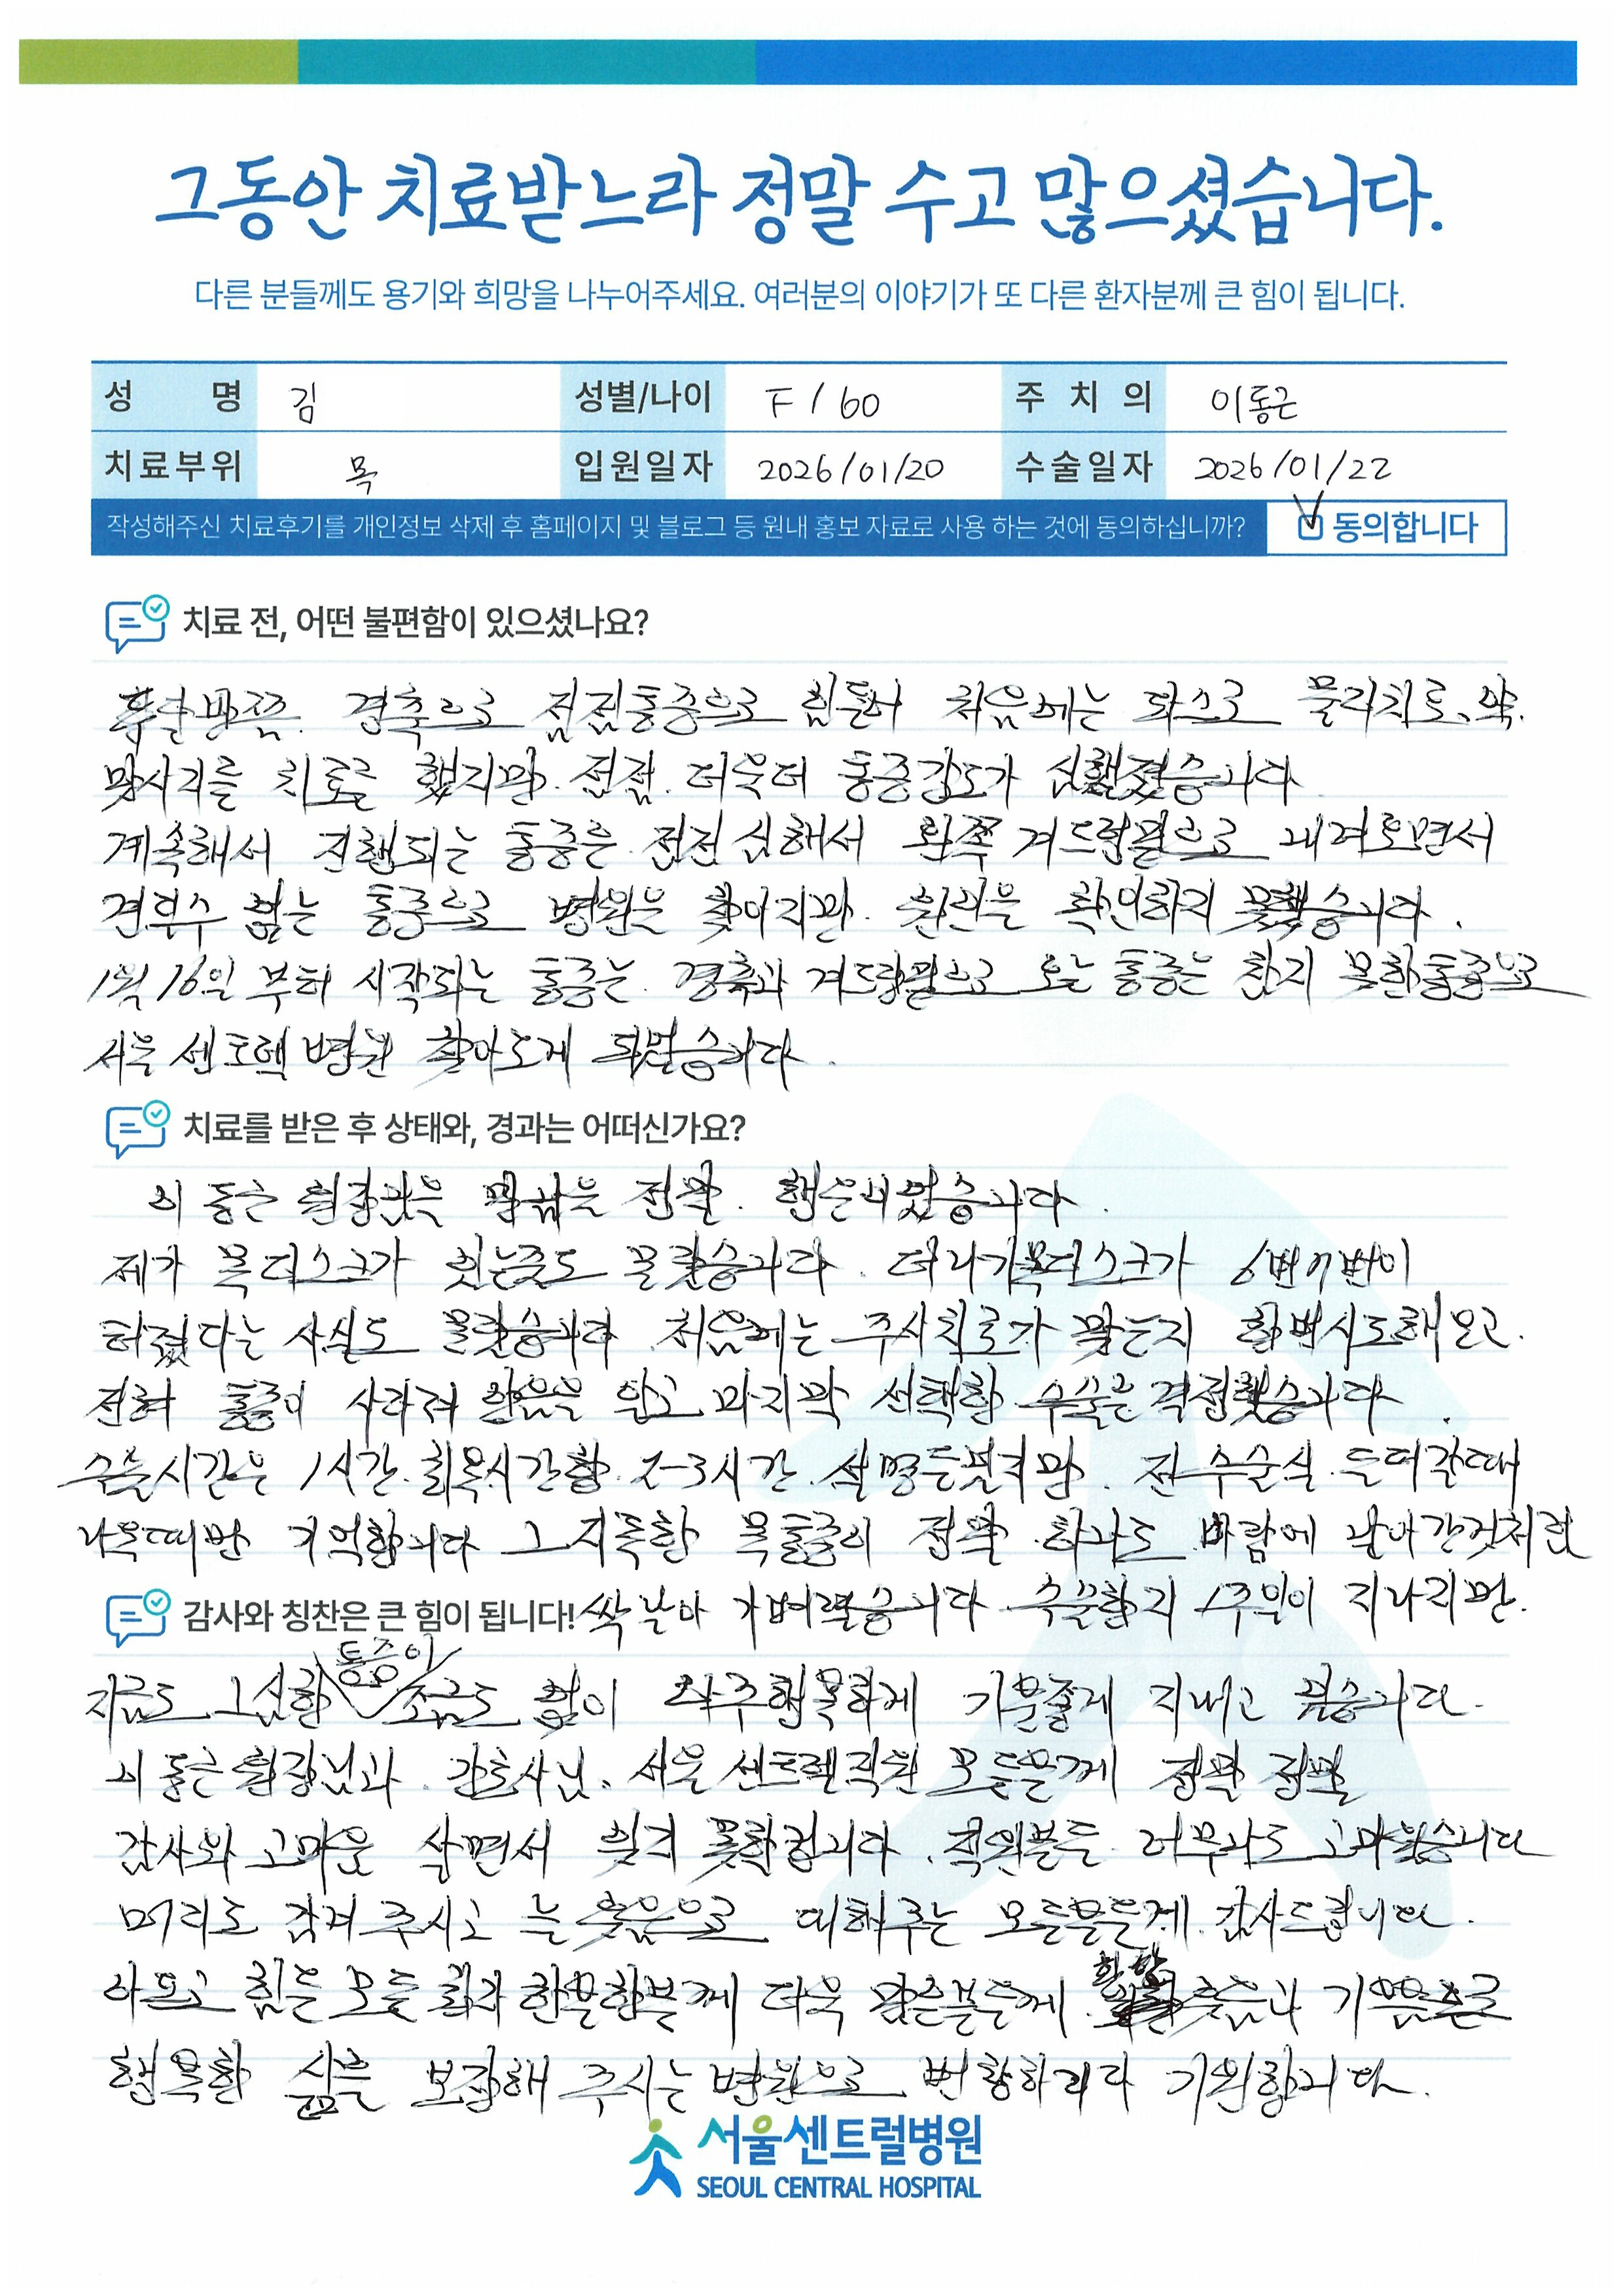 그동안 치료받느라 정말 수고 많으셨습니다.
다른 분들께도 용기와 희망을 나누어주세요. 여러분의 이야기가 또 다른 환자분께 큰 힘이 됩니다.
성 명 김 성별/나이 F / 60 주 치 의 이동근
치료부위 목 입원일자 2026/01/20 수술일자 2026/01/22
작성해주신 치료후기를 개인정보 삭제 후 홈페이지 및 블로그 등 원내 홍보 자료로 사용 하는 것에 동의하십니까? 동의합니다
치료 전, 어떤 불편함이 있으셨나요?
경추으로 점점통증으로 힘들어 처음에는 파스로 물리치료, 약.
치료를 했지만. 점점. 더욱더 통증강도가
계속해서 진행되는 통증은 점점 심해서 왼쪽 겨드랑팔으로 내려오면서
견딜수 없는 통증으로 병원을 찾아지만. 원인을 확인하지 못했습니다.
1월 16일 부터 시작되는 통증는. 경추과 겨드랑팔으로 오는 통증는 참지 못한통증으로
서울 센트럴 병원 찾아오게 되었습니다.
치료를 받은 후 상태와, 경과는 어떠신가요?
이동근 원장님을 만남은 정말. 행운이었습니다.
제가 목디스크가 있는줄도 몰랐습니다. 더나가목디스크가 6번7번이
터졌다는 사실도 몰랐습니다 처음에는 주사치료가 맞는지 한번시도해보고.
전혀 통증이 사라져 않음을 알고 마지막 선택한 수술을 결정했습니다.
수술시간은 1시간. 회복시간합. 2-3시간. 설명듣렸지만. 전 수술실. 들어갈때
나올때만 기억합니다 그 지독한 목통증이 정말. 하나도 바람에 날아간것처럼
감사와 칭찬은 큰 힘이 됩니다! 싹 날아 가버렸습니다. 수술한지 1주일이 지나지만.
통증이
지금도 그심한 조금도 없이 아주행복하게 기분좋게 지내고 있습니다.
이동근 원장님과. 간호사님. 서울 센트럴직원 모든분께 정말 정말
감사와 고마운 살면서 잊지 못할겁니다. 직원분들. 너무나도 고마웠습니다
머리도 감겨 주시고 늘 웃음으로 대해주는 모든분들께. 감사드립니다.
아프고 힘든 모든 환자 한분한분께 더욱 많은분들께
웃음과 기쁨으로
행복한 삶을 보장해 주시는 병원으로 번창하리라 기원합니다.
서울센트럴병원
SEOUL CENTRAL HOSPITAL